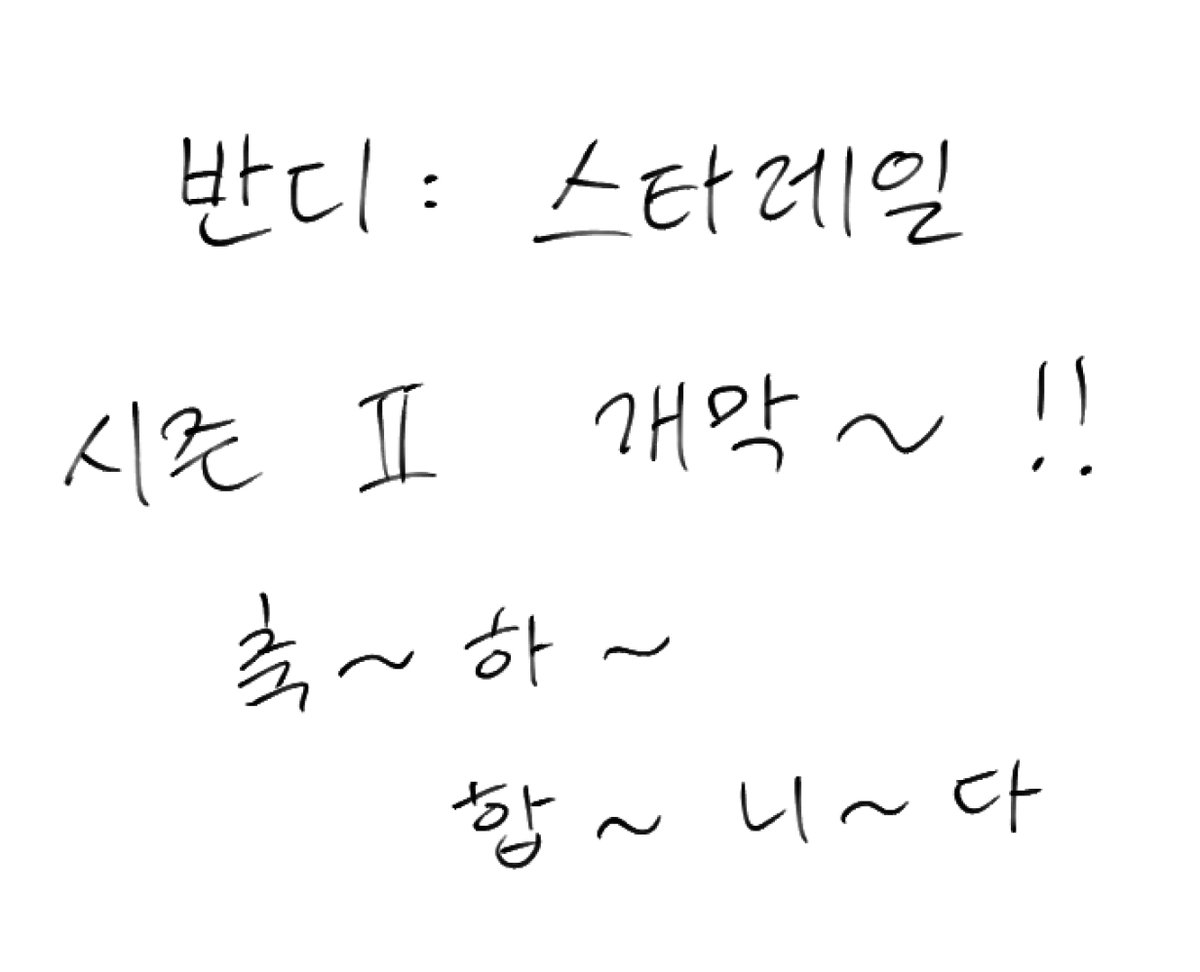 반디: 스타레일
시즌 Ⅱ 개막~!!
축~하~
합~니~다